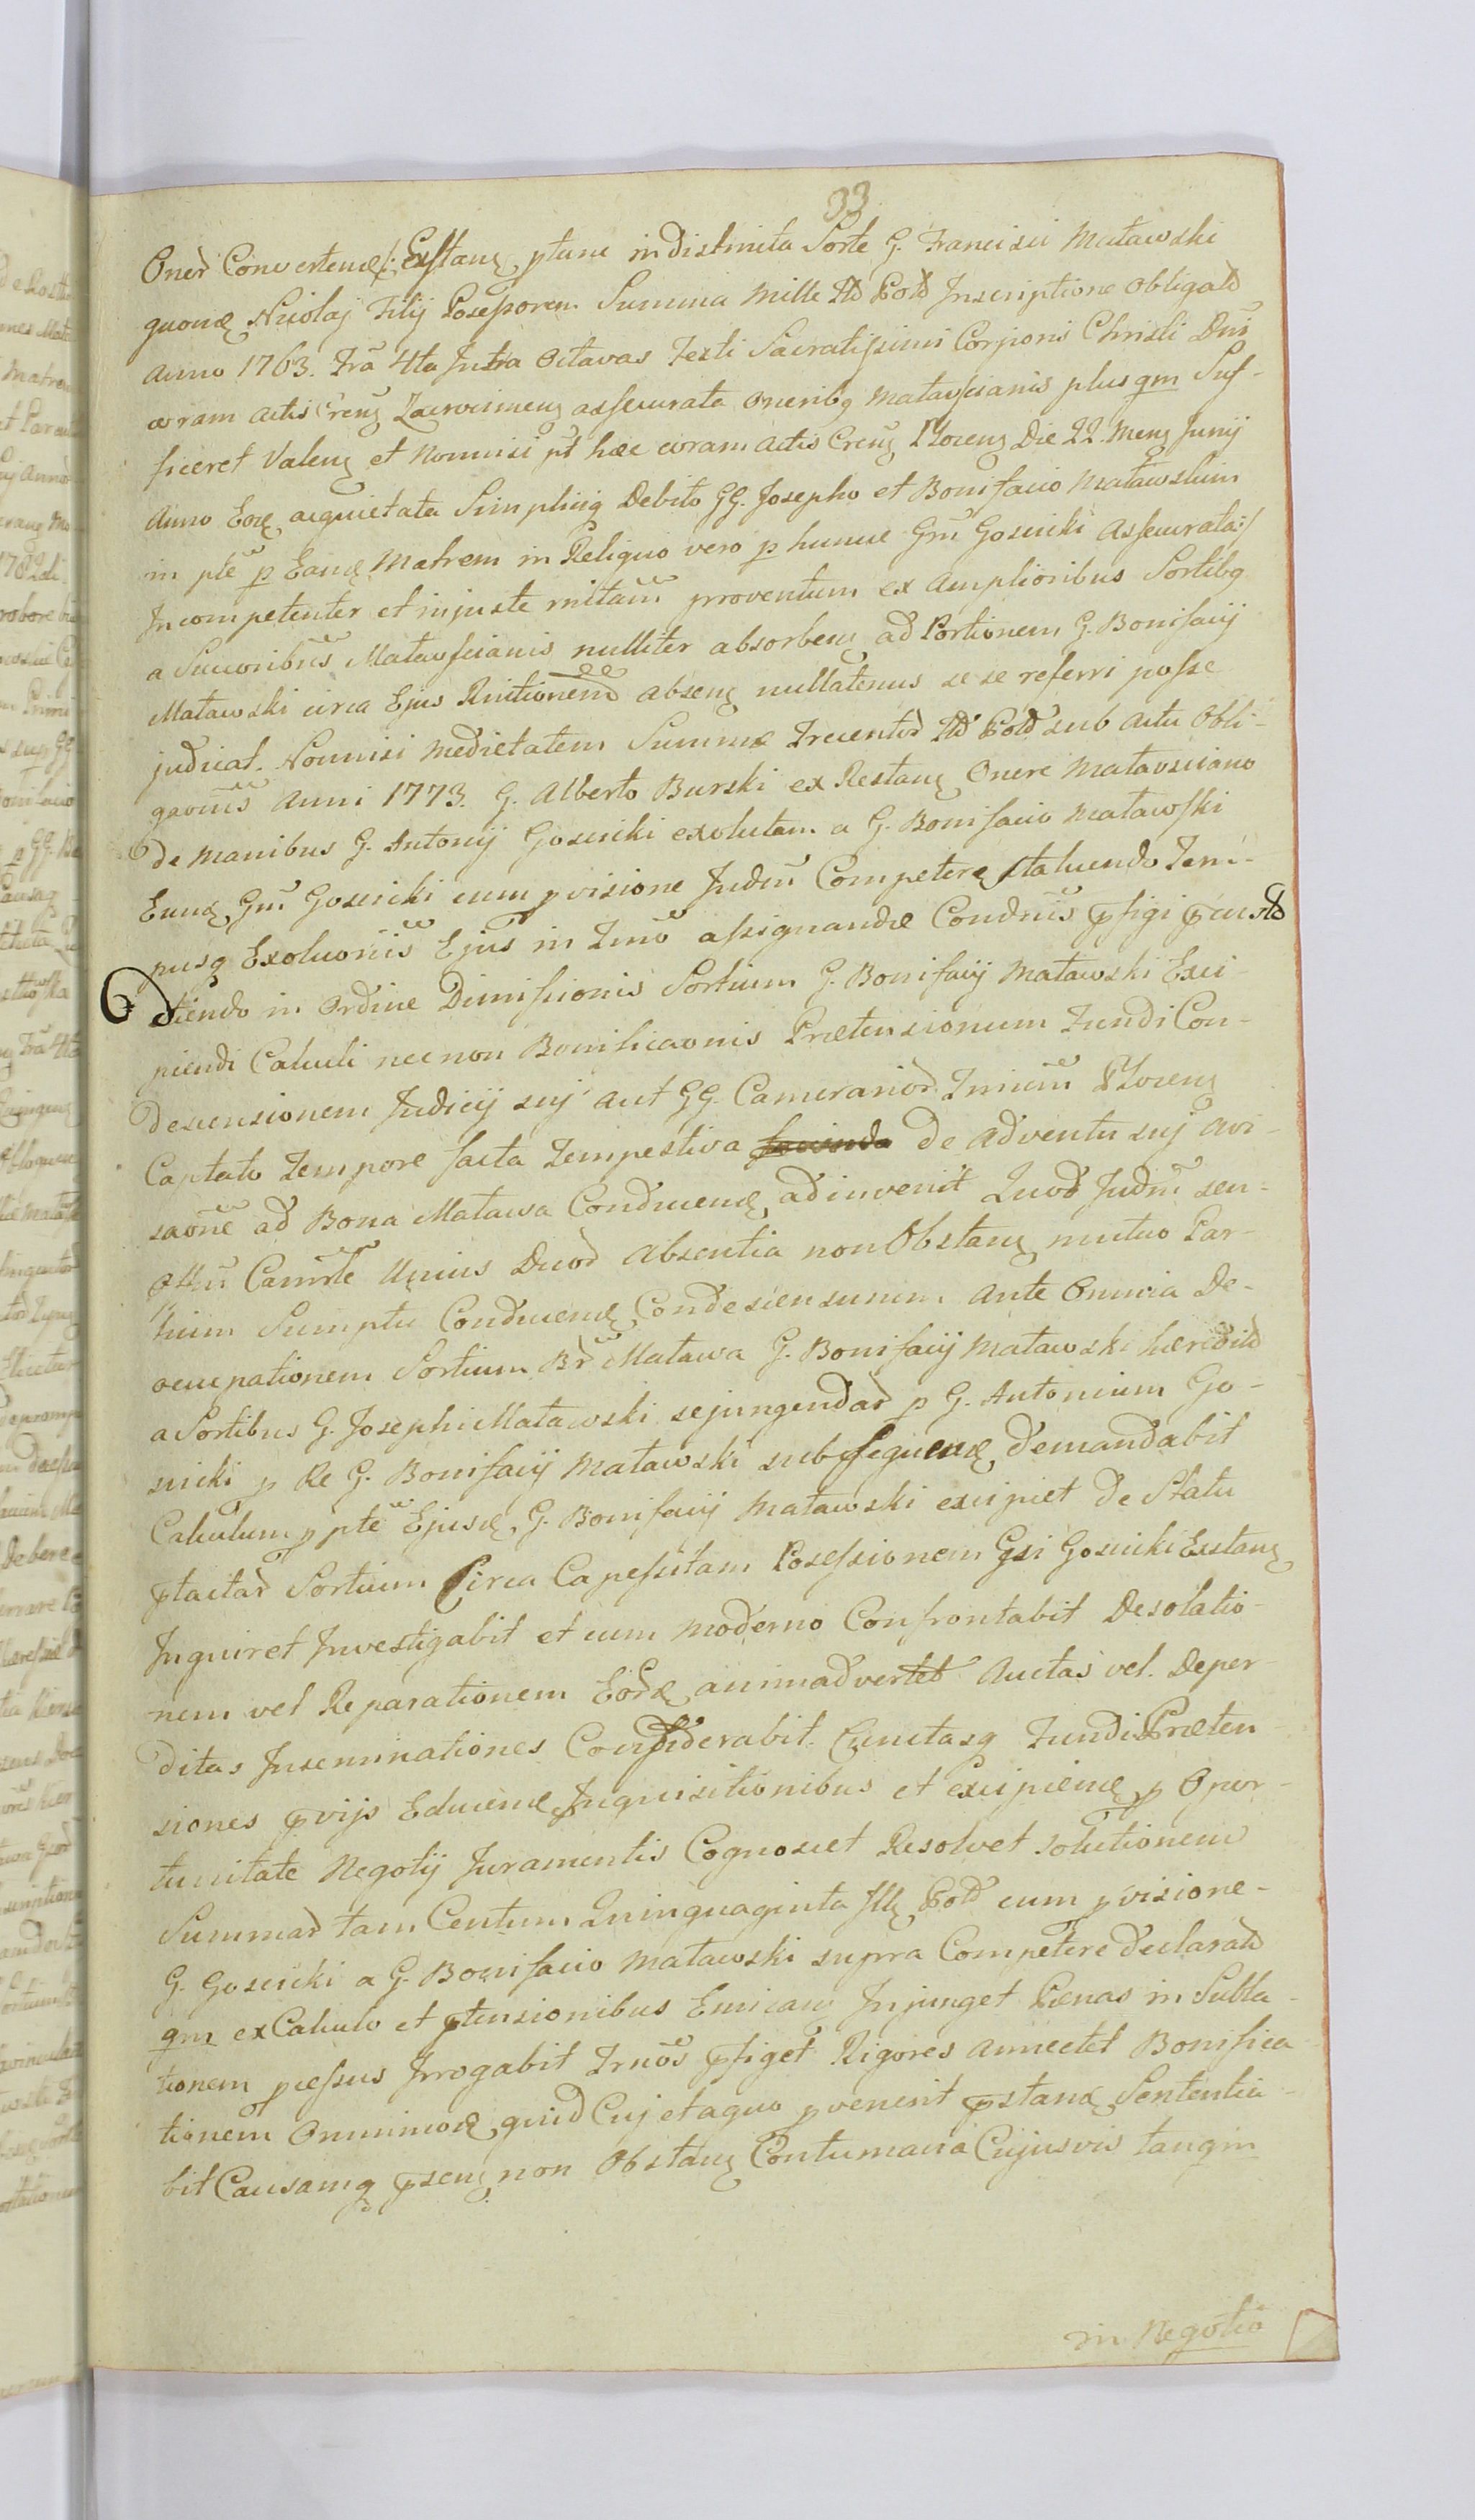 33
Onerd Convertend /: Exstanz ptunc indistincta Sorte G. Francisci Matawski
quond Nicolaj Filij Possessorem Summa Mille Fld Pold Inscriptione obligatd
Anno 1763. Fra 4ta Intra Octavas Festi Sacratissimi Corporis Christi Dni
coram Actis Crenz Zacrocimenz assecurata Oneribq Matawscianis plus qm Suf-
ficeret Valenz et Nonnisi pt hæc coram Actis Crenz Plocenz Die 22. Menz Junij
Anno Eod acquietata Simplicig Debito GG. Josepho et Bonifacio Matawskim
in pte p Eand Matrem in Reliquo vero p hunce Gm Goscicki Assecurata:/
Incompetenter et injuste proventum ex Amplioribus Sortibq
a Succoribus Matawscianis nulliter absorbenz ad Portionem G. Bonifacij
Matawski circa Ejus absenz nullatenus se se referri posse
judicat. Nonnisi Medietatem Summæ Trecentord Fld Pold sub Actu Obli-
gaonis Anni 1773. G. Alberto Burski ex Restanz Onere Matawsciano
de Manibus G. Antonij Goscicki exolutam a G. Bonifacio Matawski
Eund Gm Goscicki cum pvisione Judm Competere statuendo Tem-
pusq Exoluonis Ejus in Tmo assignandæ Condnis pfigi
diendo in Ordine Dimissionis Sortium G. Bonifacij Matawski Exci-
piendi Calculi necnon Bonificaonis Prætensionum Fundi Con-
descensionem Judicij suj aut GG. Camerariord Plocenz
Captato Tempore facta Tempestiva de adventu suj avi-
saone ad Bona Matawa Conducend adinvenit Quod Judm seu
Offm Camrle Unius Duord Absentia non Obstanz mutuo Par-
tium Sumptu Conducend Condescensurum Ante Omnia De-
occupationem Sortium Br Matawa G. Bonifacij Matawski hæreditd
a Sortibus G. Josephi Matawski sejungendard p G. Antonium Go-
scicki p Re G. Bonifacij Matawski subsequend demandabit
Calculum p pte Ejusd G. Bonifacij Matawski excipiet de Statu
ptactard Sortium Circa Capessitam Possessionem Gsi Goscicki Exstanz
Inquiret Investigabit et cum moderno Confrontabit Desolatio-
nem vel Reparationem Eord animadvertet Auctas vel Deper-
ditas Inseminationes Considerabit. Cunctasq Fundi Præten-
siones pvijs Educend Inquisitionibus et Excipiend p Opor-
tunitate Negotij Juramentis Cognoscet Resolvet solutionem
Summard tam Centum Quinquaginta Flz Pold cum pvisione
G. Goscicki a G. Bonifacio Matawski supra Competere declaratd
qm ex Calculo et ptensionibus Emicanz Injunget Pænas in Subla-
tionem pressus Irrogabit Trnos pfiget Rigores annectet Bonifica-
tionem Omnimod quid Cuj et a quo pvenerit pstand Sententia-
bit Causamq psenz non Obstanz Contumacia Cujusvis tanqm
in Negotio